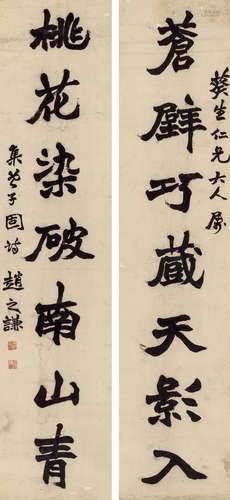 葵生仁兄大人属
蒼壁巧藏天影入
桃花染破南山青
集曾子固詩 趙之謙